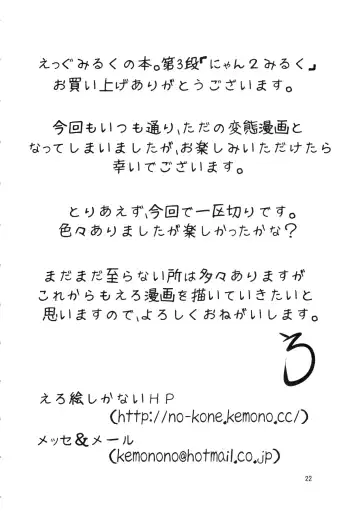 えっぐみるくの本。第3段「にゃん2みるく」
お買い上げありがとうございます。
今回もいつも通り、ただの変態漫画と
なってしまいましたが、お楽しみいただけたら
幸いでございます。
とりあえず、今回で一区切りです。
色々ありましたが楽しかったかな?
まだまだ至らない所は多々ありますが
これからもえろ漫画を描いていきたいと
思いますので、よろしくおねがいします。
ろ
えろ絵しかないHP
(http://no-kone.kemono.cc/)
メッセ&メール
(kemonono@hotmail.co.jp)
22